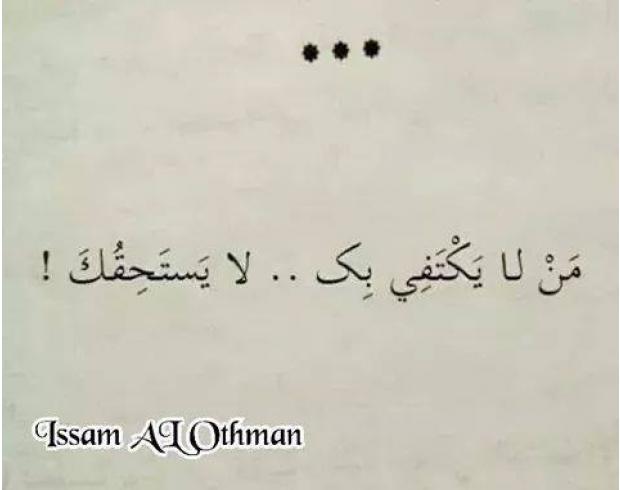 ***
مَنْ لا يَكْتَفِي بِک .. لا يَستَحِقُكَ !
Issam AL Othman